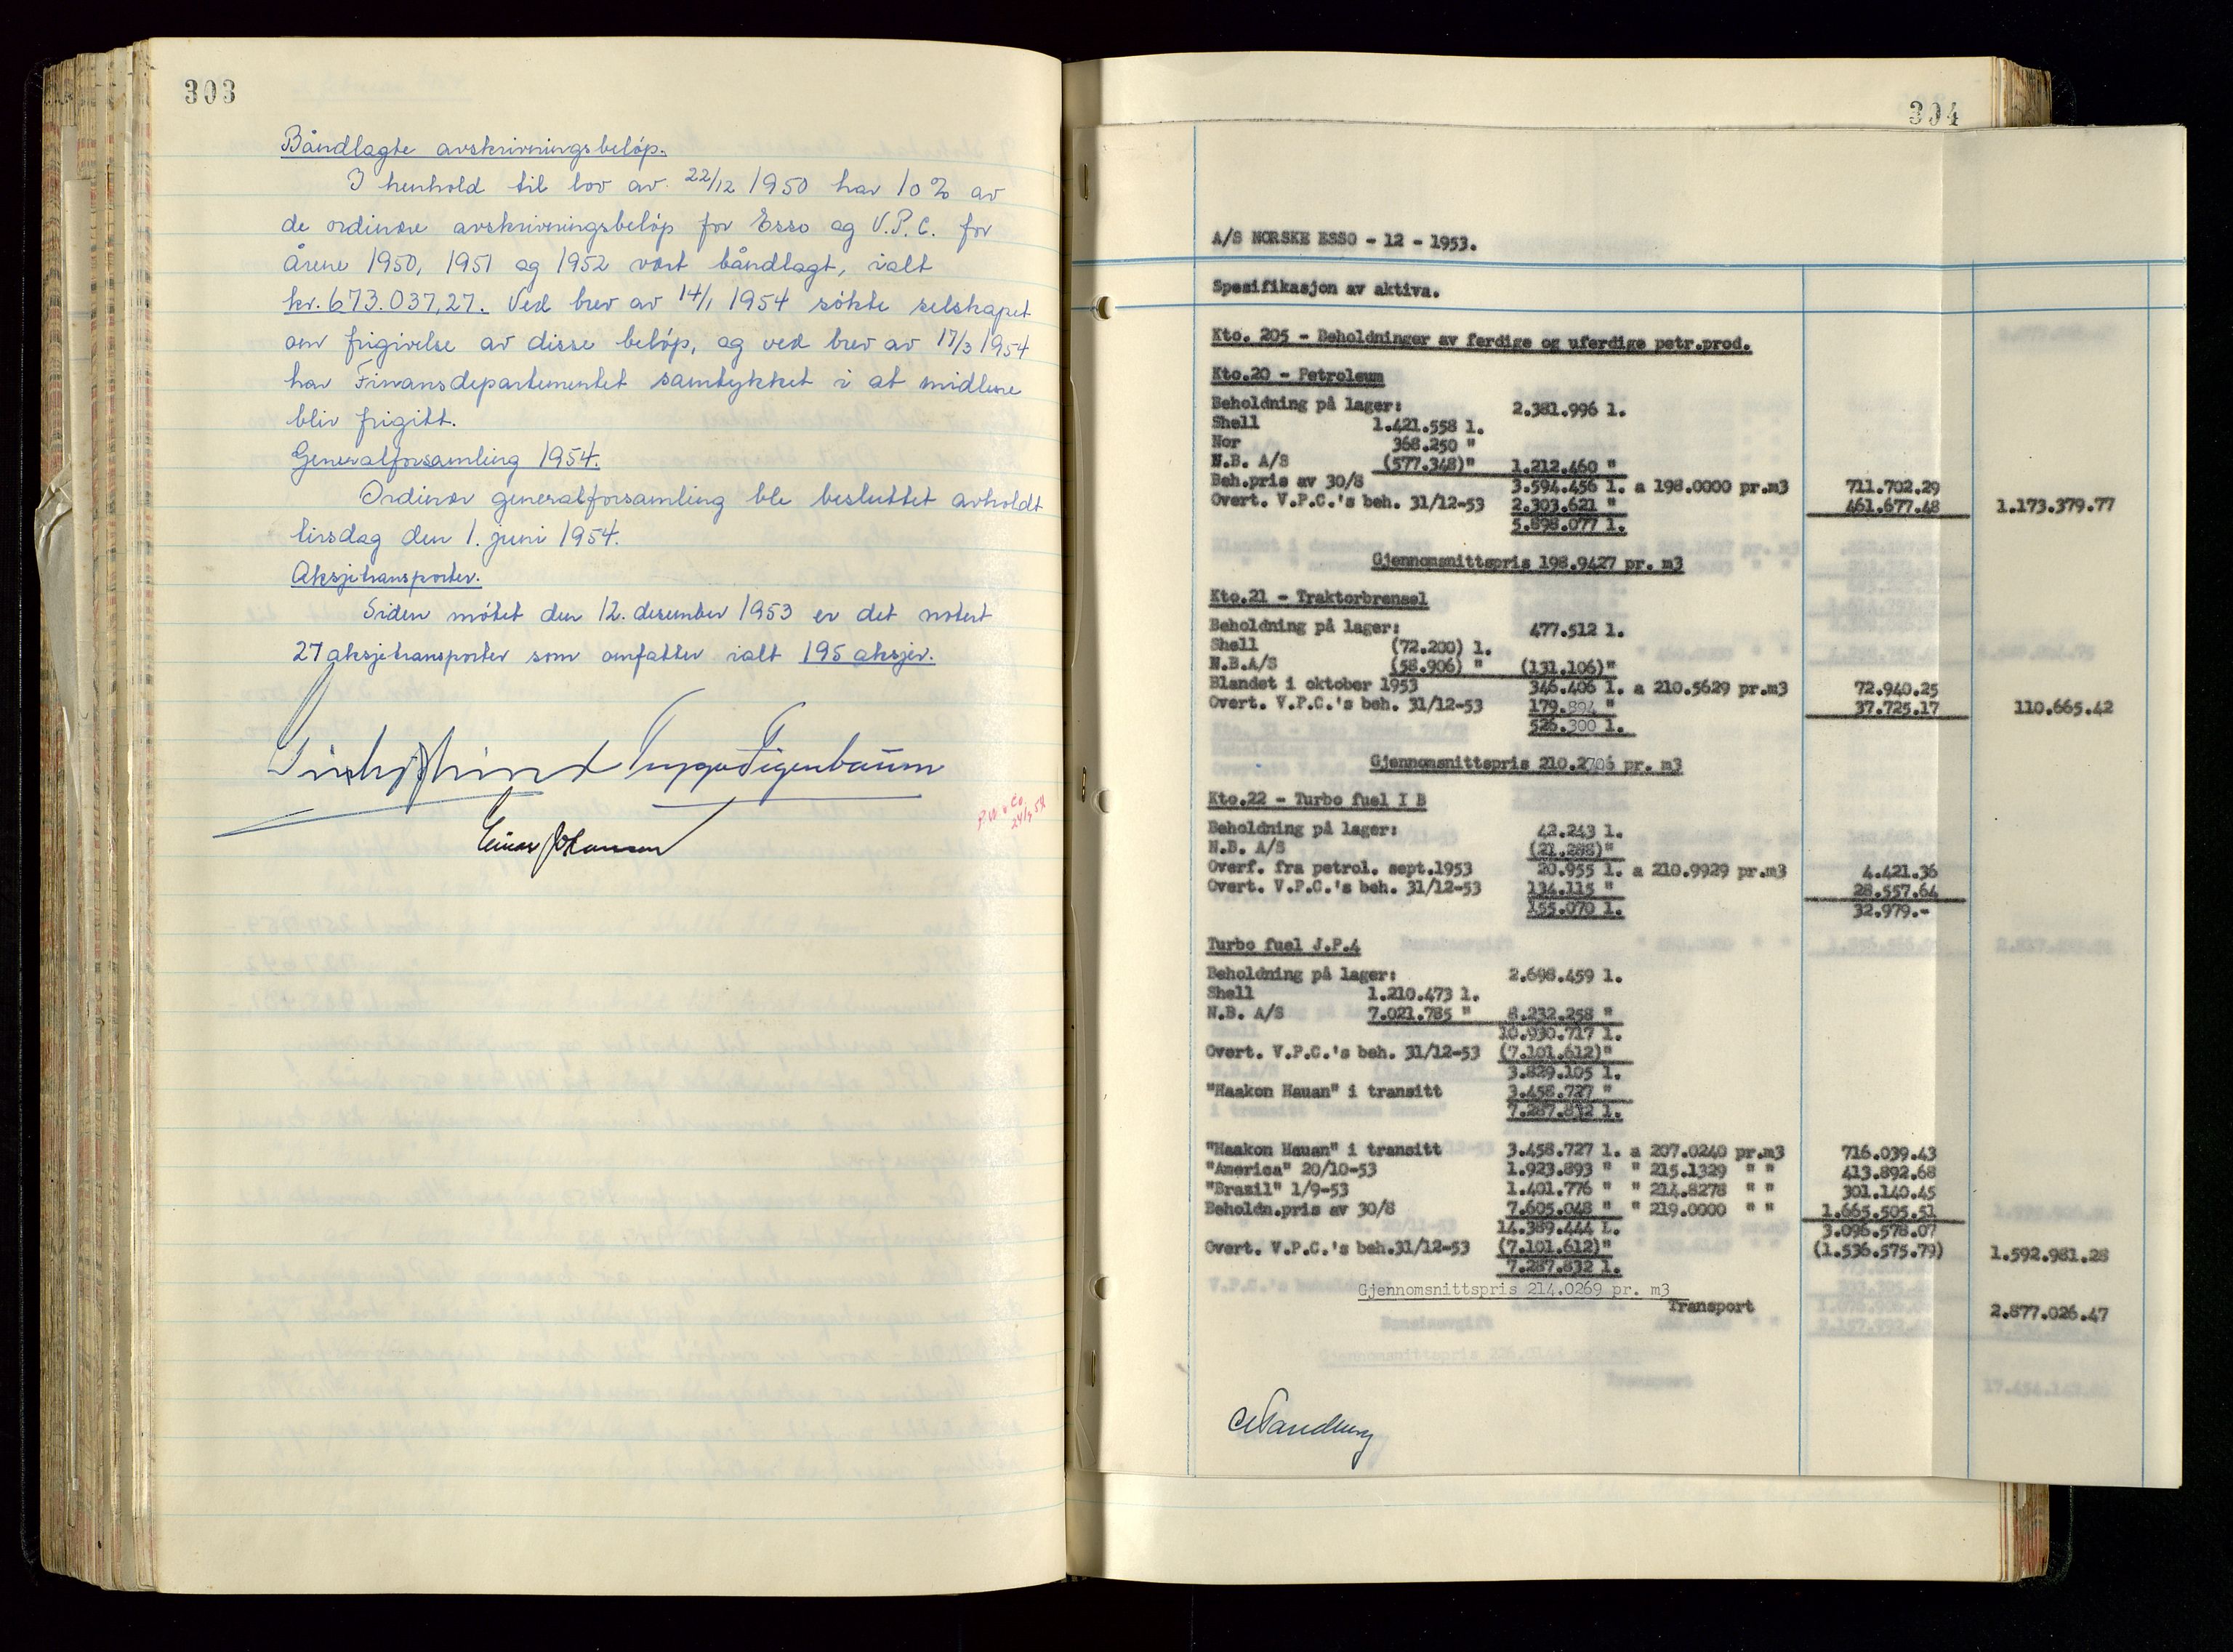 303
Båndlagte avskrivningsbeløp.
I henhold til lov av 22/12 1950 har 10% av
de ordinære avskrivningsbeløp for Esso og V.P.C. for
årene 1950, 1951 og 1952 vært båndlagt, ialt
kr. 673.037,27. Ved brev av 14/1 1954 søkte selskapet
om frigivelse av disse beløp, og ved brev av 17/3 1954
har Finansdepartementet samtykket i at midlene
blir frigitt.
Generalforsamling 1954.
Ordinær generalforsamling ble besluttet avholdt
tirsdag den 1. juni 1954.
Aksjetransporter.
Siden møtet den 12. desember 1953 er det notert
27 aksjetransporter som omfatter ialt 195 aksjer.
Einar Johansen
304
A/S NORSKE ESSO - 12 - 1953.
Spesifikasjon av aktiva.
Kto. 205 - Beholdninger av ferdige og uferdige petr.prod.
Kto.20 - Petroleum
Beholdning på lager: 2.381.996 l.
Shell 1.421.558 l.
Nor 368.250 "
N.B. A/S (577.348)" 1.212.460 "
Beh.pris av 30/8 3.594.456 l. a 198.0000 pr.m3 711.702.29
Overt. V.P.C.'s beh. 31/12-53 2.303.621 " 461.677.48 1.173.379.77
5.898.077 l.
Gjennomsnittspris 198.9427 pr. m3
Kto.21 - Traktorbrensel
Beholdning på lager: 477.512 l.
Shell (72.200) l.
N.B.A/S (58.906) " (131.106)"
Blandet i oktober 1953 346.406 l. a 210.5629 pr.m3 72.940.25
Overt. V.P.C.'s beh. 31/12-53 179.894 " 37.725.17 110.665.42
526.300 l.
Gjennomsnittspris 210.2706 pr. m3
Kto.22 - Turbo fuel I B
Beholdning på lager: 42.243 l.
N.B. A/S (21.288)"
Overf. fra petrol. sept.1953 20.955 l. a 210.9929 pr.m3 4.421.36
Overt. V.P.C.'s beh. 31/12-53 134.115 " 28.557.64
155.070 l. 32.979.-
Turbo fuel J.P.4
Beholdning på lager: 2.698.459 l.
Shell 1.210.473 l.
N.B. A/S 7.021.785 " 8.232.258 "
10.930.717 l.
Overt. V.P.C.'s beh. 31/12-53 (7.101.612)"
3.829.105 l.
"Haakon Hauan" i transitt 3.458.727 "
7.287.832 l.
"Haakon Hauan" i transitt 3.458.727 l. a 207.0240 pr.m3 716.039.43
"America" 20/10-53 1.923.893 " " 215.1329 " " 413.892.68
"Brazil" 1/9-53 1.401.776 " " 214.8278 " " 301.140.45
Beholdn.pris av 30/8 7.605.048 " " 219.0000 " " 1.665.505.51
14.389.444 L. 3.096.578.07
Overt. V.P.C.'s beh.31/12-53 (7.101.612)" (1.536.575.79) 1.592.981.28
7.287.832 l.
Gjennomsnittspris 214.0269 pr. m3
Transport 2.877.026.47